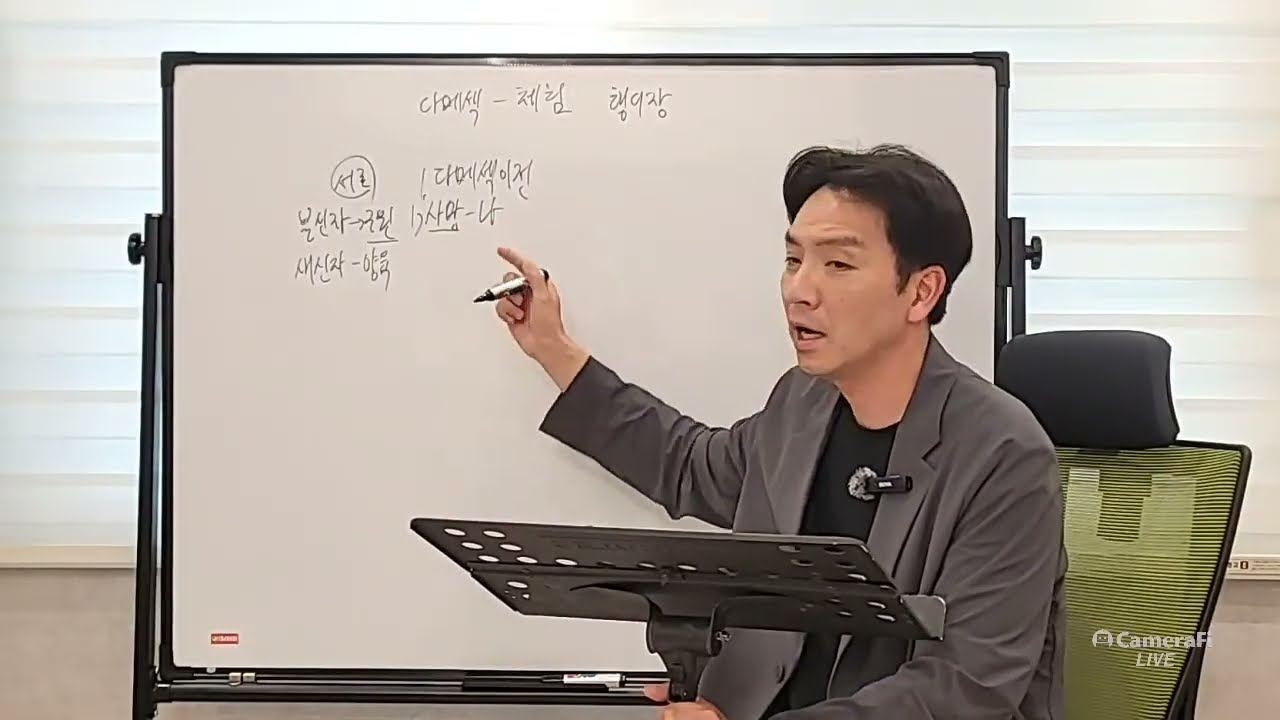 다메섹 - 체험 행9장
서론 1, 다메섹이전
불신자→구원 1) 사람-나
새신자-양육
CameraFi
LIVE